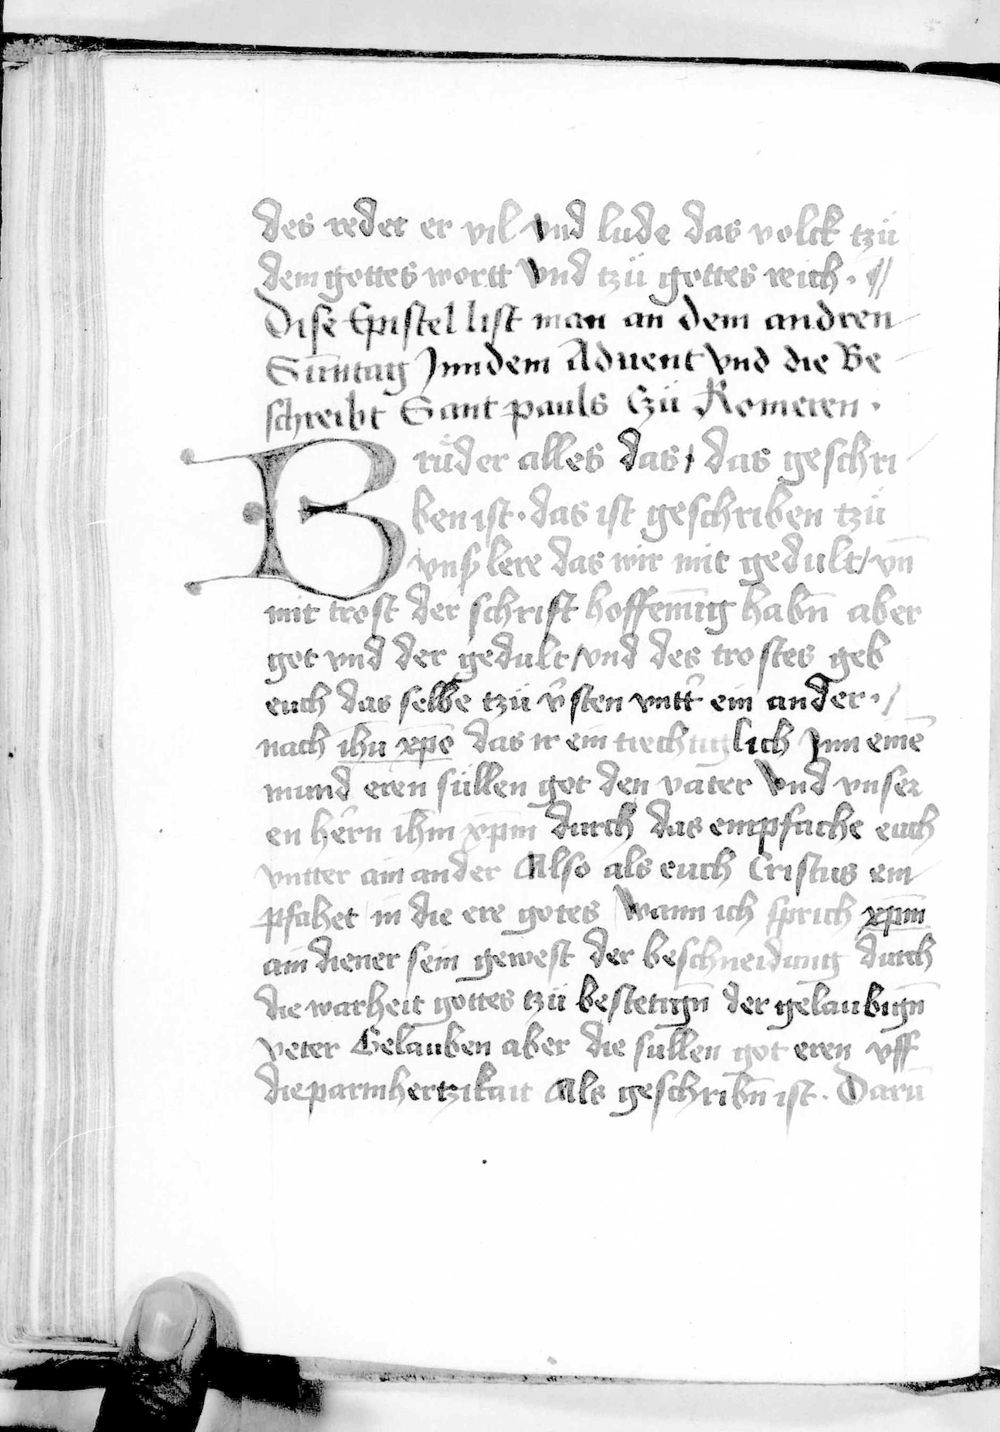 des redet er vil vnd lude das volck tzü
dem gottes wortt vnd tzü gottes reich. ¶
Dise Epistel list man an dem andren
Sūntag Jnndem Aduent Vnd die Be
schreibt Sant pauls Czü Romeren.
Brüder alles das / das geschri
ben ist. das ist geschriben tzü
vnß lere das wir mit gedult / vn̄
mit trost der schrift hoffenūg habn̄ aber
got vnd der gedult / vnd des trostes geb
euch das selbe tzü v̾sten vntt̾ ein ander. /
nach ih̄u xp̄o das ir ein trechtiglich Jnn eine̅
mund eren süllen got den vater Vnd vnser
en hern ih̄m xp̄m durch das empfache euch
vntter ain ander Also als euch Cristus em
pfahet in die ere gotes Wann ich sprich xp̄m
ain diener sein gewest der beschneidung durch
die warheit gottes tzü bestetign̄ der gelaubign̄
veter Gelauben aber die sullen got eren vff
die parmhertzikait Als geschribn̄ ist. Darū